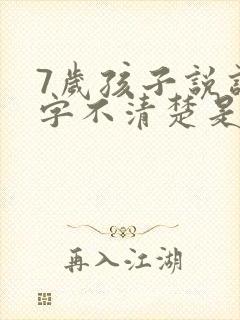 7歲孩子說
字不清楚是
再入江湖